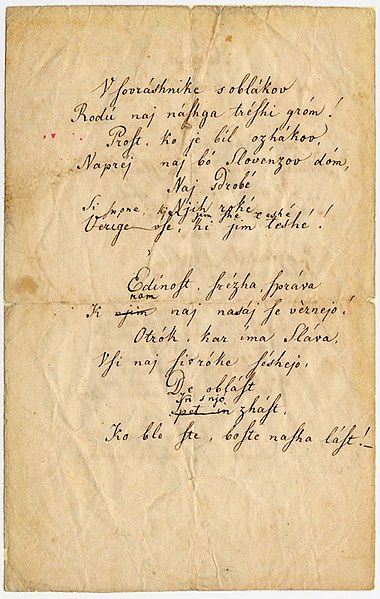 V sovráshnike s oblákov
Rodú naj nashga tréshi gróm!
Prost, ko je bil ozhákov,
Naprej naj bó Slovénzov dóm,
Naj sdrobé
Njih roké
Verige vse, ki jim teshé!
Edinost, srézha, správa
nam
K njim naj nasáj se vèrnejo!
Otrók, kar íma Sláva,
Vsi naj si v róke séshejo,
De oblást
in s njo
spet in zhást,
Ko ble ste, boste nasha lást!